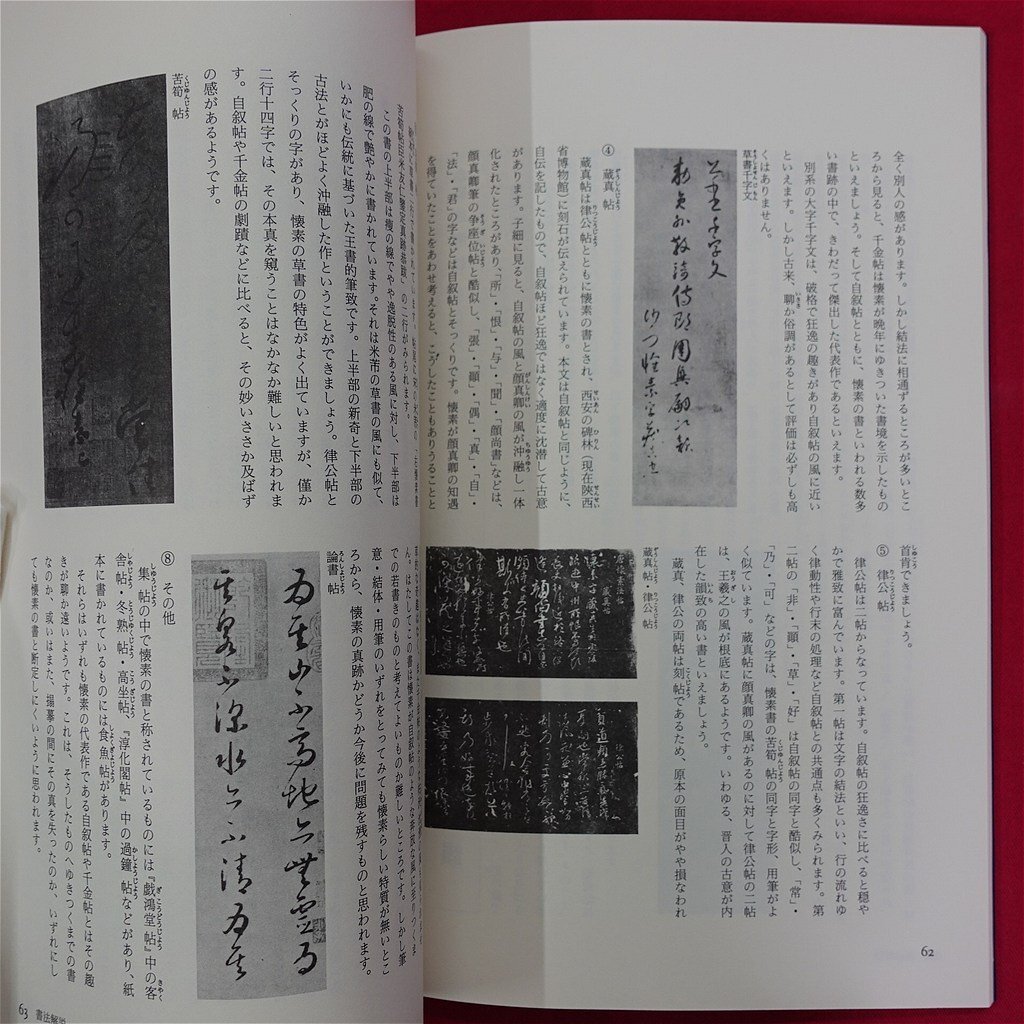 全く別人の感があります。しかし結法に相通ずるところが多いとこ
ろから見ると、千金帖は懐素が晩年にゆきついた書境を示したもの
といえましょう。そして自叙帖とともに、懐素の書といわれる数多
い書跡の中で、きわだって傑出した代表作であるといえます。
別系の大字千字文は、破格で狂逸の趣きがあり自叙帖の風に近い
といえます。しかし古来、聊か俗調があるとして評価は必ずしも高
くはありません。
草書千字文
④ 蔵真帖
蔵真帖は律公帖とともに懐素の書とされ、西安の碑林(現在陝西
省博物館)に刻石が伝えられています。本文は自叙帖と同じように、
自伝を記したもので、自叙帖ほど狂逸ではなく適度に沈潜して古意
があります。子細に見ると、自叙帖の風と顔真卿の風が沖融し一体
化されたところがあり、「所」・「恨」・「与」・「聞」・「顔尚書」などは、
顔真卿筆の争座位帖と酷似し、「張」・「顚」・「偶」・「真」・「自」・
「法」・「君」の字などは自叙帖とそっくりです。懐素が顔真卿の知遇
を得ていたことをあわせ考えると、こうしたこともありうることと
首肯できましょう。
⑤ 律公帖
律公帖は二帖からなっています。自叙帖の狂逸さに比べると穏や
かで雅致に富んでいます。第一帖は文字の結法といい、行の流れゆ
く律動性や行末の処理など自叙帖との共通点も多くみられます。第
二帖の「非」・「顚」・「草」・「好」は自叙帖の同字と酷似し、「常」・
「乃」・「可」などの字は、懐素書の苦筍帖の同字と字形、用筆がよ
く似ています。蔵真帖に顔真卿の風があるのに対して律公帖の二帖
は、王羲之の風が根底にあるようです。いわゆる、晋人の古意が内
在した韻致の高い書といえましょう。
蔵真、律公の両帖は刻帖であるため、原本の面目がやや損なわれ
蔵真帖・律公帖
62
の二行がみられます。
この書の上半部は痩の線でやや逸脱性のある風に対し、下半部は
肥の線で艶やかに書かれています。それは米芾の草書の風にも似て、
いかにも伝統に基づいた王書的筆致です。上半部の新奇と下半部の
古法とがほどよく沖融した作ということができましょう。律公帖と
そっくりの字があり、懐素の草書の特色がよく出ていますが、僅か
二行十四字では、その本真を窺うことはなかなか難しいと思われま
す。自叙帖や千金帖の劇蹟などに比べると、その妙いささか及ばず
の感があるようです。
苦筍帖
ん。はたしてこの書は懐素が自叙帖のような奔放な風に至りつくま
での若書きのものと考えてよいものか難しいところです。しかし筆
意・結体・用筆のいずれをとってみても懐素らしい特質が無いとこ
ろから、懐素の真跡かどうか今後に問題を残すものと思われます。
論書帖
⑧ その他
集帖の中で懐素の書と称されているものには『戯鴻堂帖』中の客
舎帖・冬熟帖・高坐帖、『淳化閣帖』中の過鐘帖などがあり、紙
本に書かれているものには食魚帖があります。
それらはいずれも懐素の代表作である自叙帖や千金帖とはその趣
きが聊か遠いようです。これは、そうしたものへゆきつくまでの書
なのか、或いはまた、搨摹の間にその真を失ったのか、いずれにし
ても懐素の書と断定しにくいように思われます。
63 書法解説